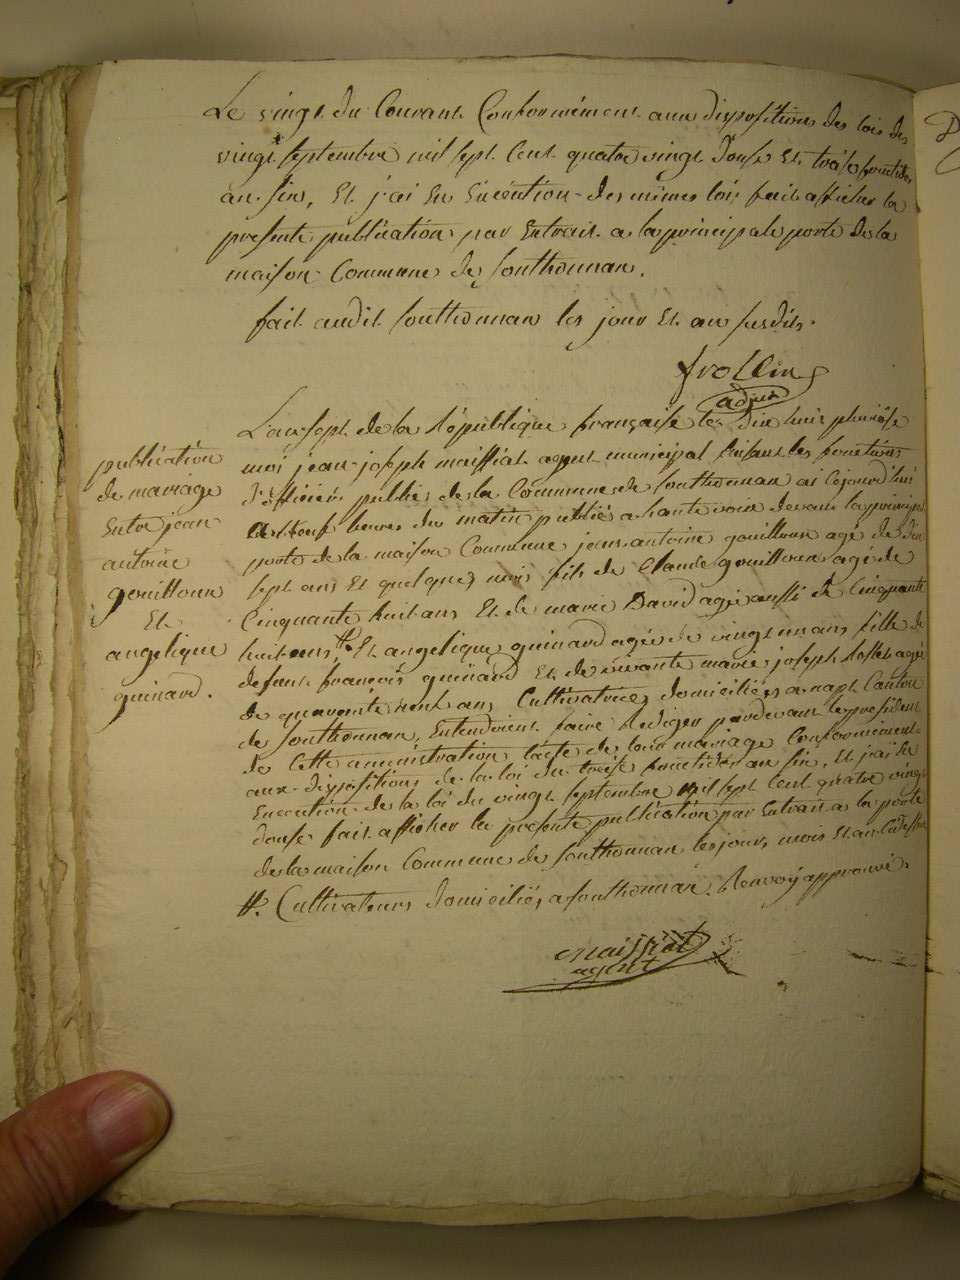 Le vingt du Courant Conformément aux dispositions des lois des
vingt septembre mil sept Cent quatre vingt douse Et treise fructidor
an six, Et j'ai En Exécution des mêmes lois fait afficher la
presente publication par Extrait a la principale porte de la
maison Commune de Southonnax.
fait audit Southonnax les jour Et an susdits.
frollin
adjux
L'an sept de la République française le Dix huit pluviôse
moi jean joseph maissiat agent municipal faisant les fonctions
d'officier public de la Commune de Southonnax ai Cejourd'hui
heures du matin publié a haute voix devant la principale
porte de la maison Commune jean antoine gouilloux agé de dix
sept ans Et quelques mois fils de Claude gouilloux agé de
Cinquante huit ans Et de marie David agée aussi de Cinquante
huit ans, #. Et angelique guinard agée de vingt un ans fille de
defunt françois guinard Et de vivante marie joseph agée
de quarante ans Cultivatrices domiciliées a napt Canton
de Southonnax, Entendoient faire Rediger pardevant le president
de Cette administration l'acte de leur mariage Conformément
aux dispositions de la loi du treise fructidor an six, Et j'ai En
Execution de la loi du vingt septembre mil sept Cent quatre vingt
douse fait afficher la presente publication par Extrait a la porte
de la maison Commune de Southonnax les jour, mois Et an
#. Cultivateurs domiciliés a Southonnax. Renvoy approuvé.
maissiat
agent
publication
de mariage
Entre jean
antoine
gouilloux
Et
angelique
guinard.